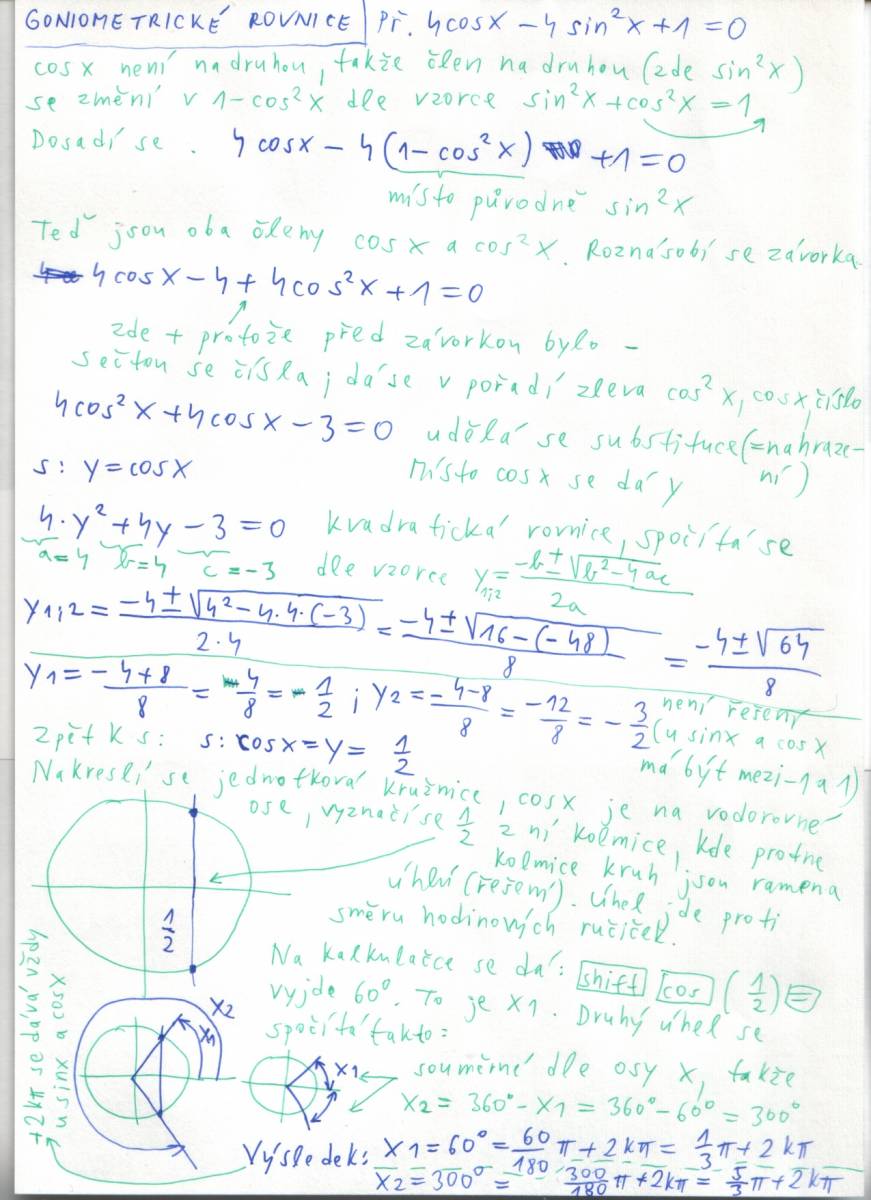 GONIOMETRICKÉ ROVNICE | Př. 4cosx - 4 sin²x + 1 = 0
cosx není na druhou, takže člen na druhou (zde sin²x)
se změní v 1-cos²x dle vzorce sin²x + cos²x = 1
Dosadí se. 4 cosx - 4 (1-cos²x) + 1 = 0
místo původně sin²x
Teď jsou oba členy cosx a cos²x. Roznásobí se závorka
4cosx - 4 + 4cos²x + 1 = 0
zde + protože před závorkou bylo -
sečtou se čísla, dá se v pořadí zleva cos²x, cosx, číslo
4cos²x + 4cosx - 3 = 0 udělá se substituce (=nahraze-
ní)
s: y = cosx místo cosx se dá y
4·y² + 4y - 3 = 0 kvadratická rovnice, spočítá se
a=4 b=4 c=-3 dle vzorce y1,2 = (-b±√(b²-4ac))/2a
y1;2 = (-4±√(4²-4·4·(-3)))/2·4 = (-4±√(16-(-48)))/8 = (-4±√64)/8
y1 = (-4+8)/8 = 4/8 = 1/2 ; y2 = (-4-8)/8 = -12/8 = -3/2 není řešení
(u sinx a cosx
má být mezi -1 a 1)
Zpět k s: s: cosx = y = 1/2
Nakreslí se jednotková kružnice, cosx je na vodorovné
ose, vyznačí se 1/2 z ní kolmice, kde protne
kolmice kruh jsou ramena
úhlů (řešení). Úhel jde proti
směru hodinových ručiček.
1/2
Na kalkulačce se dá: shift cos (1/2) =
vyjde 60°. To je x1. Druhý úhel se
spočítá takto:
x2
x1
x1
souměrné dle osy x, takže
x2 = 360° - x1 = 360° - 60° = 300°
+2kπ se dává vždy
u sinx a cosx
Výsledek: x1 = 60° = 60/180 π + 2kπ = 1/3 π + 2kπ
x2 = 300° = 300/180 π + 2kπ = 5/3 π + 2kπ